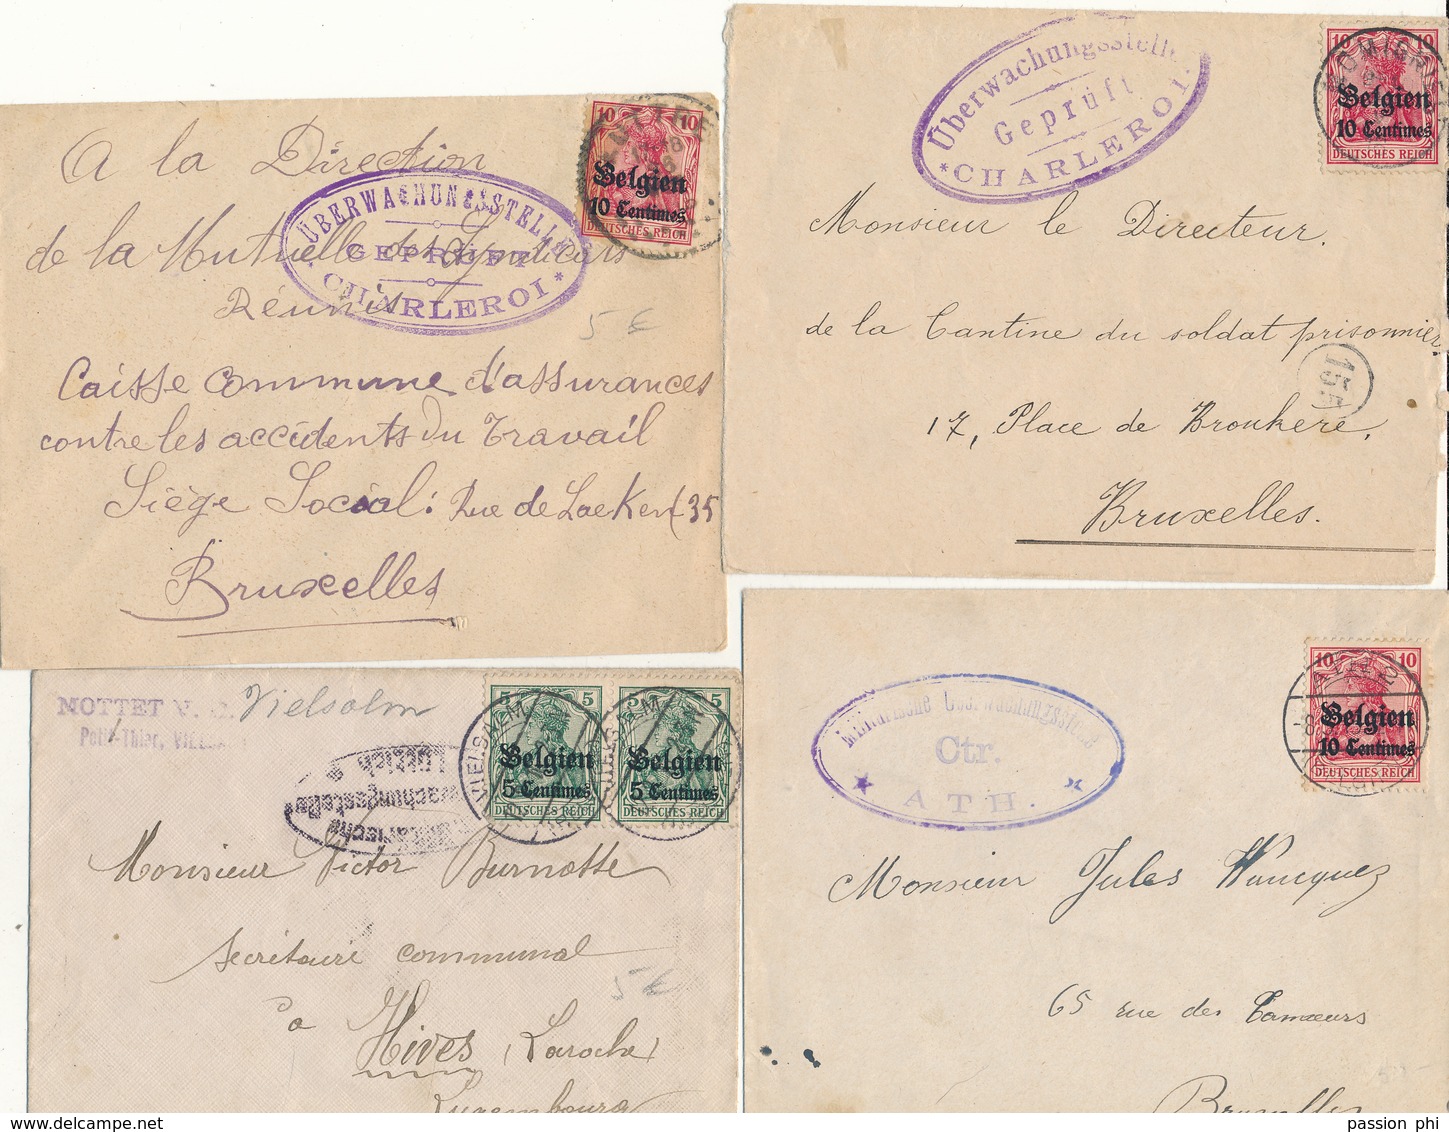 A la Direction
de la Mutuelle des Syndicats
Réunis
Caisse commune d'assurances
contre les accidents du Travail
Siège Social: Rue de Laeken (35
Bruxelles
ÜBERWACHUNGSSTELLE
GEPRÜFT
* CHARLEROI *
10 10
Belgien
10 Centimes
DEUTSCHES REICH
5 €
Überwachungsstelle
Geprüft
* CHARLEROI.
10 10
Belgien
10 Centimes
DEUTSCHES REICH
Monsieur le Directeur.
de la Cantine du soldat prisonnier
155
17, Place de Broukère,
Bruxelles.
MOTTET
Vielsalm
Petit-Thier,
5 5
Belgien
5 Centimes
DEUTSCHES REICH
5 5
Belgien
5 Centimes
DEUTSCHES REICH
VIELSALM
Lüttich
Überwachungsstelle
Militärische
Monsieur Victor Burnotte
secrétaire communal
à
Hives (Laroche)
Luxembourg
5 €
Militärische Überwachungsstelle
Ctr.
* ATH. *
10 10
Belgien
10 Centimes
DEUTSCHES REICH
Monsieur Jules
65 rue des Tanneurs
Bruxelles
passion phi